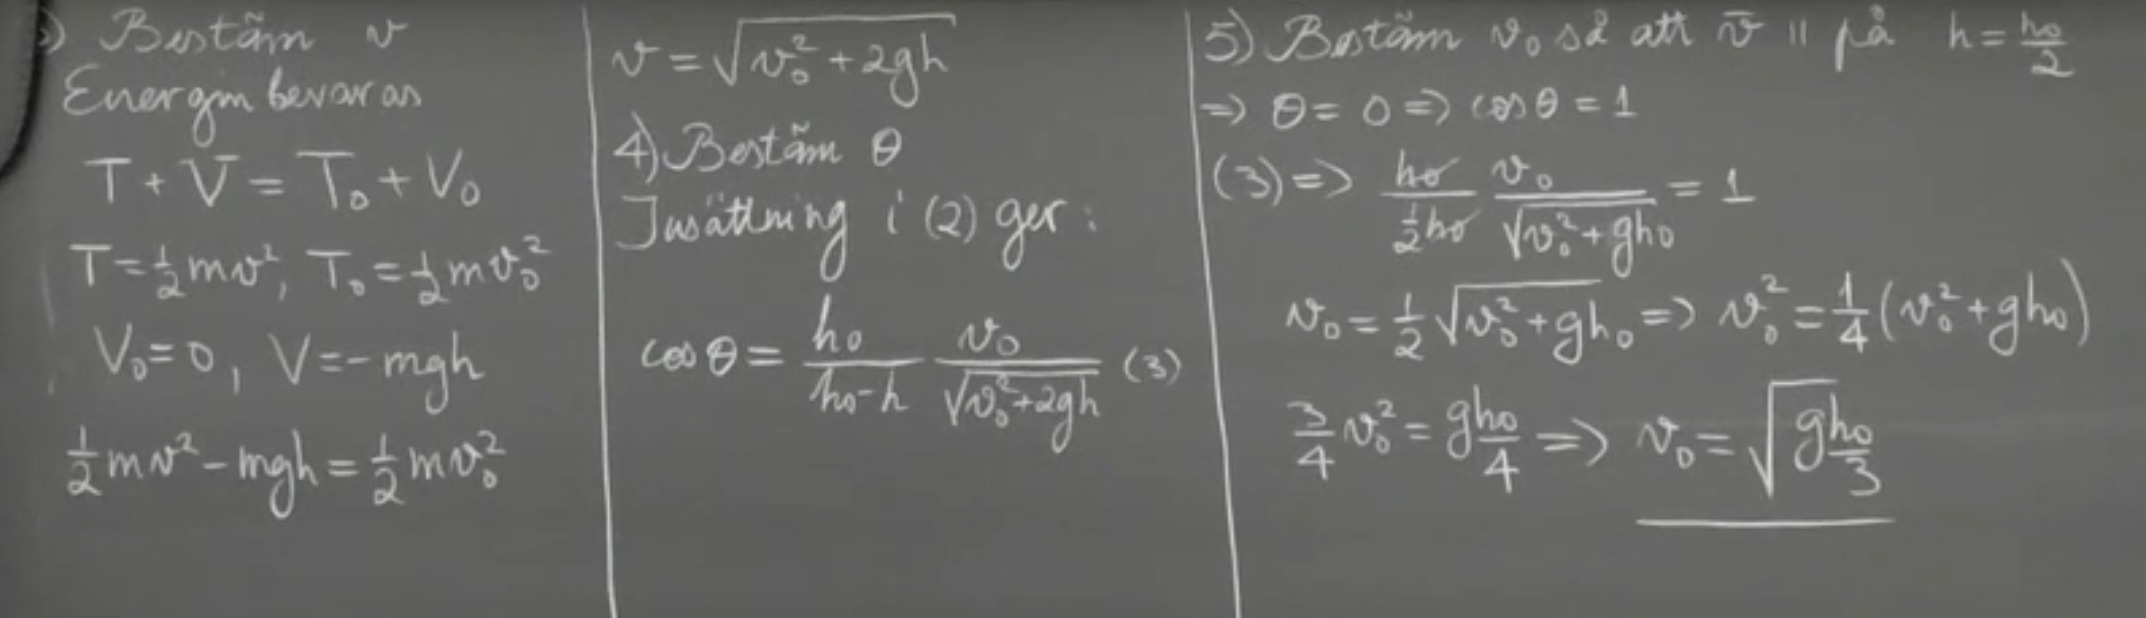 3) Bestäm v
Energin bevaras
T + V = T₀ + V₀
T = ½mv², T₀ = ½mv₀²
V₀ = 0, V = -mgh
½mv² - mgh = ½mv₀²
v = √(v₀² + 2gh)
4) Bestäm θ
Insättning i (2) ger:
cos θ = h₀/(h₀-h) v₀/√(v₀²+2gh) (3)
5) Bestäm v₀ så att v̄ || på h = h₀/2
=> θ = 0 => cos θ = 1
(3) => h₀/(½h₀) v₀/√(v₀²+gh₀) = 1
v₀ = ½√(v₀²+gh₀) => v₀² = ¼(v₀²+gh₀)
¾v₀² = gh₀/4 => v₀ = √(gh₀/3)